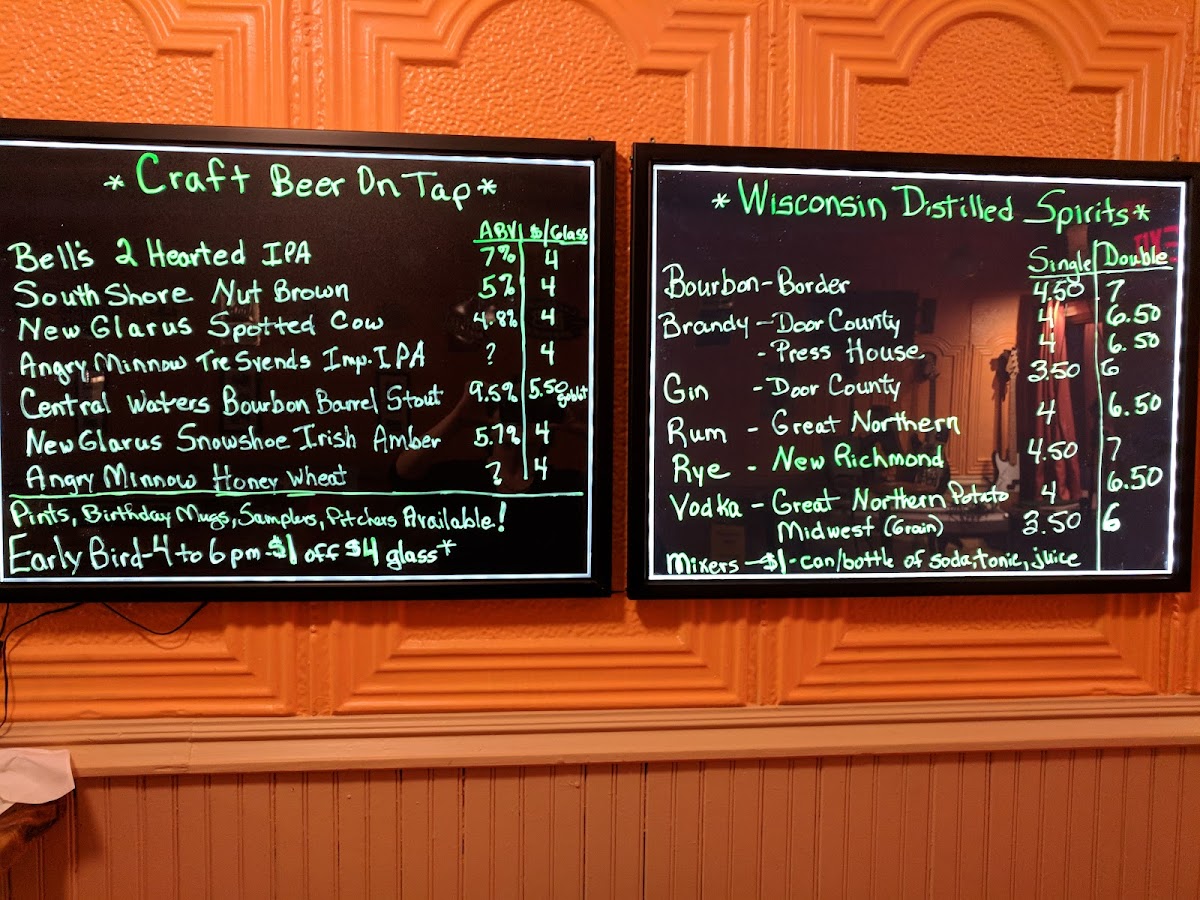 *Craft Beer On Tap*
ABV $/Glass
Bell's 2 Hearted IPA 7% 4
South Shore Nut Brown 5% 4
New Glarus Spotted Cow 4.8% 4
Angry Minnow Tre Svends Imp. IPA ? 4
Central Waters Bourbon Barrel Stout 9.5% 5.50 goblet
New Glarus Snowshoe Irish Amber 5.7% 4
Angry Minnow Honey Wheat ? 4
Pints, Birthday Mugs, Samplers, Pitchers Available!
Early Bird-4 to 6pm-$1 off $4 glass*
*Wisconsin Distilled Spirits*
Single Double
Bourbon-Border 4.50 7
Brandy-Door County 4 6.50
-Press House 4 6.50
Gin -Door County 3.50 6
Rum - Great Northern 4 6.50
Rye - New Richmond 4.50 7
Vodka - Great Northern Potato 4 6.50
Midwest (Grain) 3.50 6
Mixers-$1-can/bottle of soda, tonic, juice